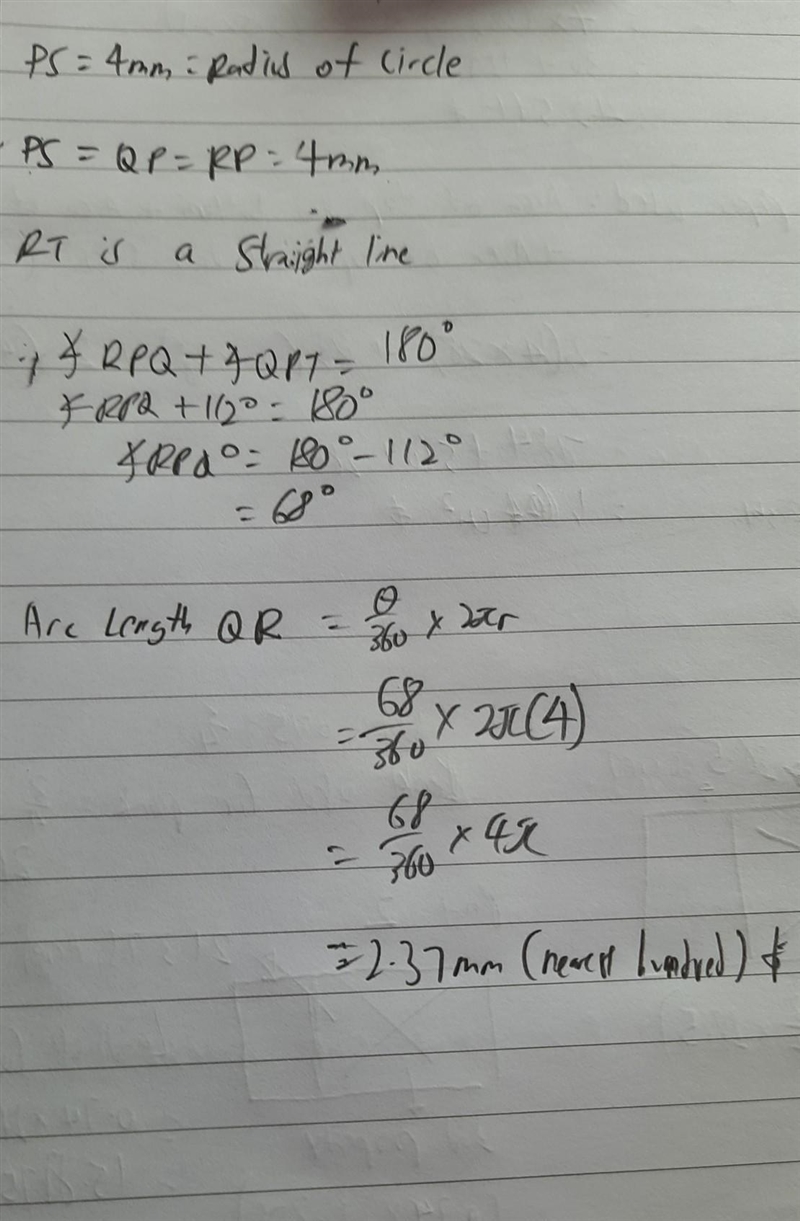 PS = 4mm = Radius of Circle
PS = QP = RP = 4mm
RT is a Straight line
∴ ∡RPQ + ∡QPT = 180°
∡RPQ + 112° = 180°
∡RPQ° = 180° - 112°
= 68°
Arc Length QR = θ/360 × 2πr
= 68/360 × 2π(4)
= 68/360 × 4π
≈ 2.37mm (nearest hundred)